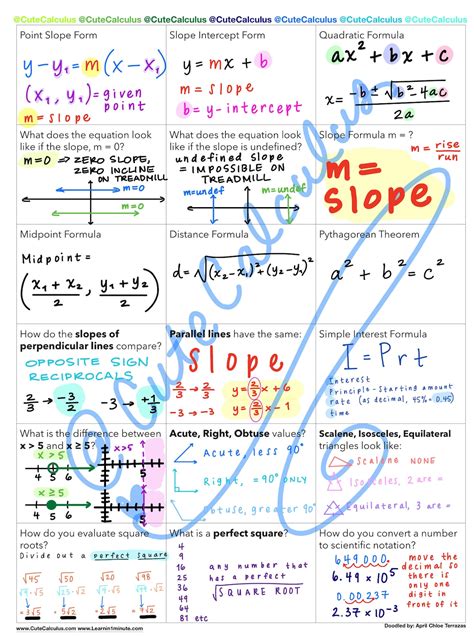 @CuteCalculus @CuteCalculus @CuteCalculus @CuteCalculus @CuteCalculus @CuteCalculus
Point Slope Form
y - y₁ = m (x - x₁)
(x₁, y₁) = given
point
m = slope
Slope Intercept Form
y = mx + b
m = slope
b = y-intercept
Quadratic Formula
ax² + bx + c
x = -b ± √b² 4ac
2a
What does the equation look
like if the slope, m = 0?
m=0 ⇒ ZERO SLOPE,
ZERO INCLINE
ON TREADMILL
m=0
m=0
What does the equation look
like if the slope is undefined?
undefined slope
= IMPOSSIBLE ON
TREADMILL
m=undef
m=undef
Slope Formula m = ?
m = rise
run
m =
slope
Midpoint Formula
Midpoint =
(x₁ + x₂ , y₁ + y₂)
2 2
Distance Formula
d = √(x₂-x₁)² + (y₂-y₁)²
Pythagorean Theorem
a² + b² = c²
How do the slopes of
perpendicular lines compare?
OPPOSITE SIGN
RECIPROCALS
2/3 → -3/2
-3 → +1/3
Parallel lines have the same:
Slope
2/3 → 2/3
-3 → -3
y = 2/3 x + 6
y = 2/3 x - 1
Simple Interest Formula
I = Prt
Interest
Principle - Starting amount
rate (as decimal, 45% = 0.45)
time
What is the difference between
x > 5 and x ≥ 5?
x > 5
4 5 6
x ≥ 5
4 5 6
x>5
x≥5
Acute, Right, Obtuse values?
Acute, less 90°
Right, = 90° ONLY
Obtuse, greater 90°
Scalene, Isosceles, Equilateral
triangles look like:
Scalene NONE
Isosceles, 2 are =
Equilateral, 3 are =
How do you evaluate square
roots?
Divide out a perfect square
√45 √50 √20 √98
√9·√5 √25·√2 √4·√5
3√5 5√2 2√5 7√2
What is a perfect square?
4
9
16
25
36
49
64
81 etc
any number that
has a perfect
SQUARE ROOT
How do you convert a number
to scientific notation?
649000.
6.49 x 10⁵
.00649
6.49 x 10⁻³
move the
decimal so
there is
only one
digit in
front of it
@CuteCalculus
www.CuteCalculus.com www.Learnin1minute.com
Doodled by: April Chloe Terrazas